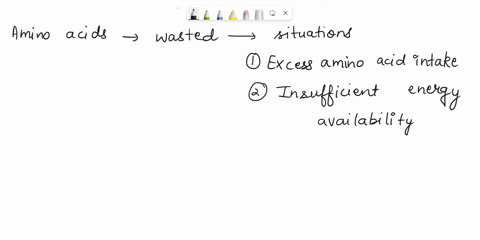 Amino acids → wasted → situations
① Excess amino acid intake
② Insufficient energy
availability